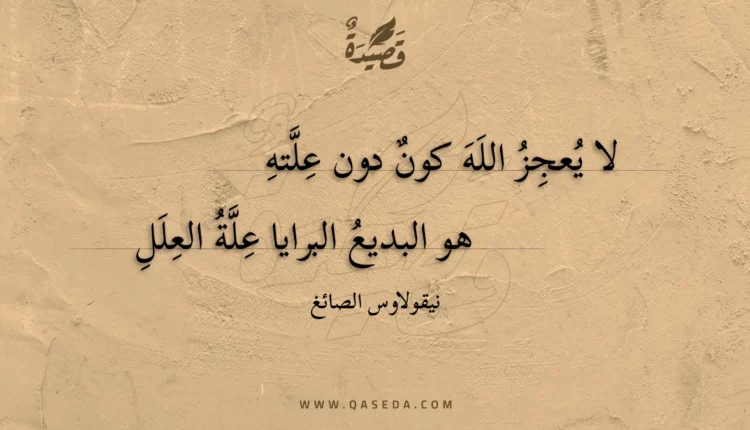 قَصِيدَةٌ
لا يُعجِزُ اللَهَ كونٌ دون عِلَّتهِ
هو البديعُ البرايا عِلَّةُ العِلَلِ
نيقولاوس الصائغ
WWW.QASEDA.COM